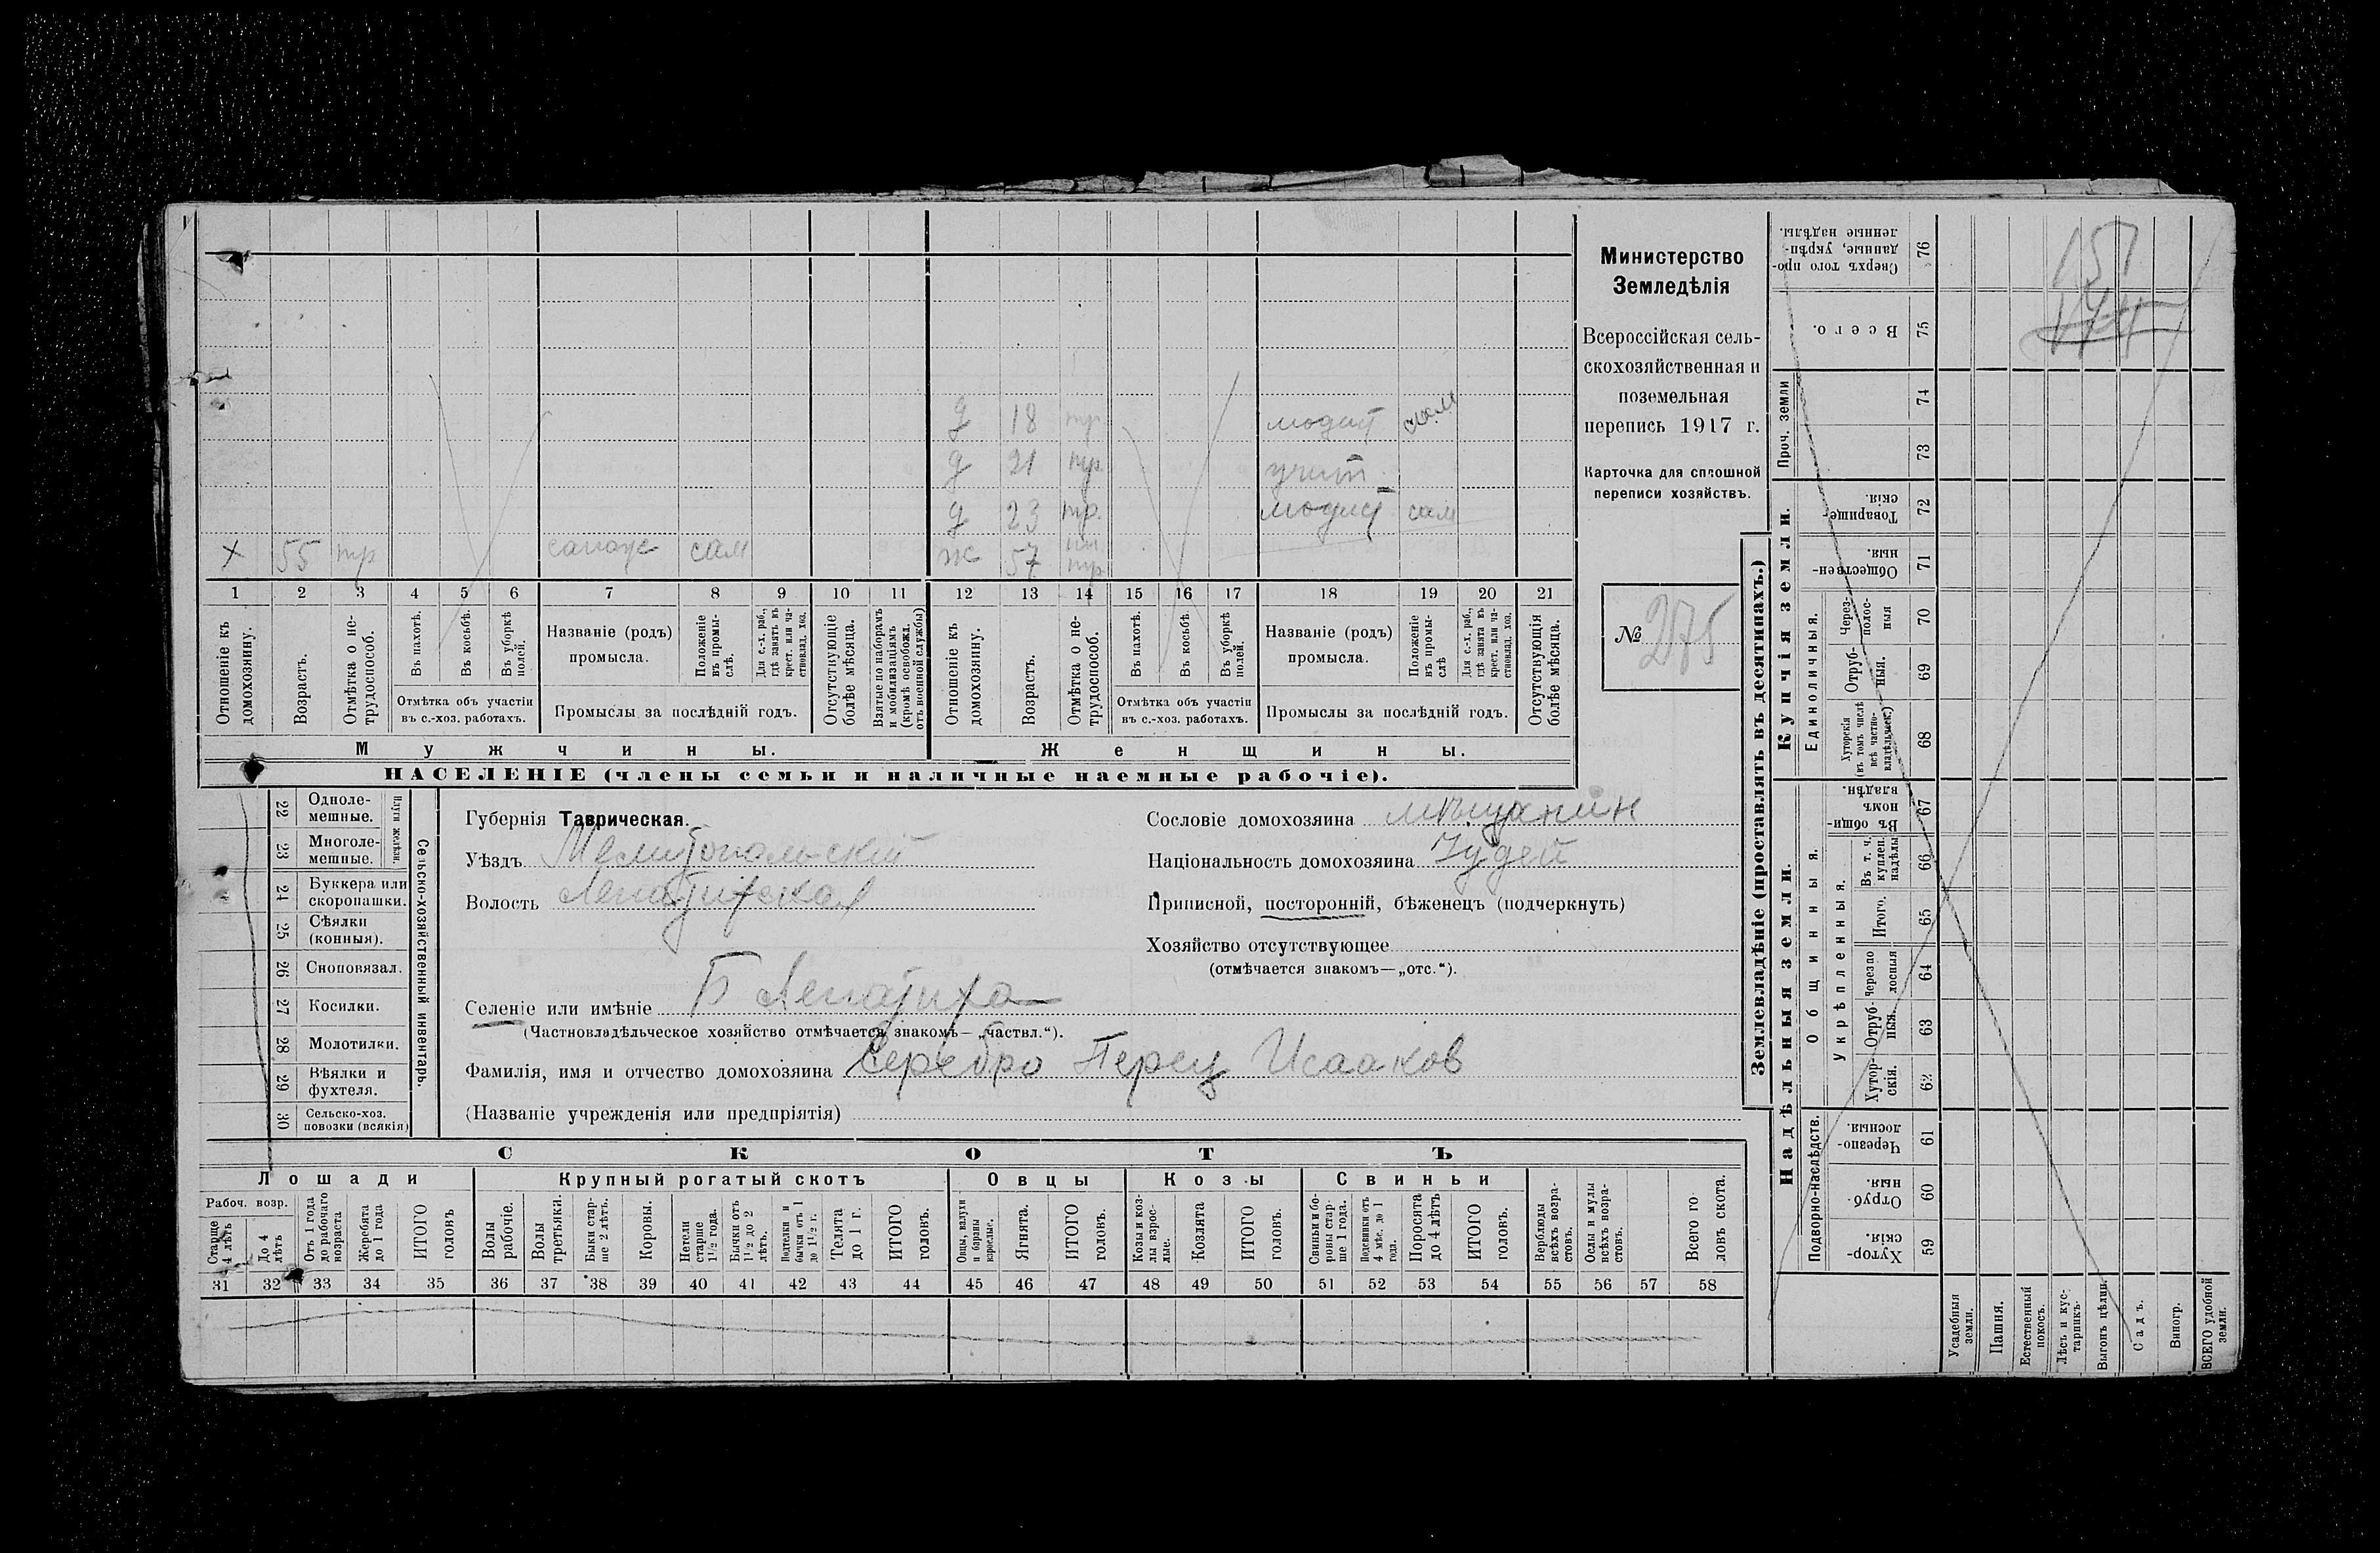 157
174
д 18 тр. модист сам
д 21 тр. учит.
д 23 тр. модист сам
х 55 тр сапож сам ж 57 тр
1 2 3 4 5 6 7 8 9 10 11 12 13 14 15 16 17 18 19 20 21
Отношеніе къ домохозяину.
Возрастъ.
Отмѣтка о не-
трудоспособ.
Въ пахотѣ.
Въ косьбѣ.
Въ уборкѣ
полей.
Отмѣтка объ участіи
въ с.-хоз. работахъ.
Названіе (родъ)
промысла.
Положеніе
въ промы-
слѣ.
Для с.-х. раб.,
гдѣ занятъ въ
крест. или ча-
стновлад. хоз.
Промыслы за послѣдній годъ.
Отсутствующіе
болѣе мѣсяца.
Взятые по наборамъ
и мобилизаціямъ
(кромѣ освобожд.
отъ военной службы)
Отношеніе къ
домохозяину.
Возрастъ.
Отмѣтка о не-
трудоспособ.
Въ пахотѣ.
Въ косьбѣ.
Въ уборкѣ
полей.
Отмѣтка объ участіи
въ с.-хоз. работахъ.
Названіе (родъ)
промысла.
Положеніе
въ промы-
слѣ
Для с.-х. раб.,
гдѣ занята въ
крест. или ча-
стновлад. хоз.
Промыслы за послѣдній годъ.
Отсутствующія
болѣе мѣсяца.
Мужчины.
Женщины.
НАСЕЛЕНІЕ (члены семьи и наличные наемные рабочіе).
Министерство
Земледѣлія
Всероссійская сель-
скохозяйственная и
поземельная
перепись 1917 г.
Карточка для сплошной
переписи хозяйствъ.
№ 275
22 Одноле-
мешные.
23 Многоле-
мешные.
Плуги желѣзн.
24 Буккера или
скоропашки.
25 Сѣялки
(конныя).
26 Сноповязал.
27 Косилки.
28 Молотилки.
29 Вѣялки и
фухтеля.
30 Сельско-хоз.
повозки (всякія)
Сельско-хозяйственный инвентарь.
Губернія Таврическая.
Уѣздъ Мелитопольскій
Волость Лепатихская
Селеніе или имѣніе Б Лепатиха
(Частновладѣльческое хозяйство отмѣчается знакомъ— „частвл.“).
Фамилія, имя и отчество домохозяина Серебро Перец Исааков
(Названіе учрежденія или предпріятія)
Сословіе домохозяина мѣщанин
Національность домохозяина Іудей
Приписной, посторонній, бѣженецъ (подчеркнуть)
Хозяйство отсутствующее
(отмѣчается знакомъ—„отс.“).
СКОТЪ
Лошади
Крупный рогатый скотъ
Овцы
Козы
Свиньи
Рабоч. возр.
Старше
4 лѣтъ
До 4
лѣтъ
Отъ 1 года
до рабочаго
возраста
Жеребята
до 1 года
ИТОГО
головъ
Волы
рабочіе.
Волы
третьяки.
Быки стар-
ше 2 лѣтъ.
Коровы.
Нетели
старше
1½ года.
Бычки отъ
1½ до 2
лѣтъ.
Подтелки и
бычки отъ 1
до 1½ г.
Телята
до 1 г.
ИТОГО
головъ.
Овцы, валухи
и бараны
взрослые.
Ягнята.
ИТОГО
головъ.
Козы и коз-
лы взрос-
лые.
Козлята
ИТОГО
головъ.
Свиньи и бо-
ровы стар-
ше 1 года.
Подсвинки отъ
4 мѣс. до 1
года.
Поросята
до 4 лѣтъ
ИТОГО
головъ.
Верблюды
всѣхъ возра-
стовъ.
Ослы и мулы
всѣхъ возра-
стовъ.
Всего го
ловъ скота.
31 32 33 34 35 36 37 38 39 40 41 42 43 44 45 46 47 48 49 50 51 52 53 54 55 56 57 58
Землевладѣніе (проставлять въ десятинахъ.)
Надѣльныя земли.
Купчія земли.
Проч. земли
Подворно-наслѣдств.
Общинныя.
Укрѣпленныя.
Единоличныя.
Хутор-
скія. 59
Отруб-
ныя. 60
Черезпо-
лосныя. 61
Хутор-
скія. 62
Отруб-
ныя. 63
Черезпо
лосныя 64
Итого. 65
Въ т. ч.
куплен.
надѣлы 66
Въ общи-
номъ
владѣн. 67
Хуторскія
(въ томъ числѣ
всѣ частно-
владѣльческ.) 68
Отруб-
ныя. 69
Через-
полос-
ныя 70
Обществен-
ныя. 71
Товарище-
скія. 72
73
74
Всего. 75
Сверхъ того про-
данные, укрѣп-
ленные надѣлы. 76
Усадебныя
земли.
Пашня.
Естественный
покосъ.
Лѣсъ и кус-
тарникъ.
Выгонъ цѣлин.
Садъ.
Виногр.
ВСЕГО удобной
земли.